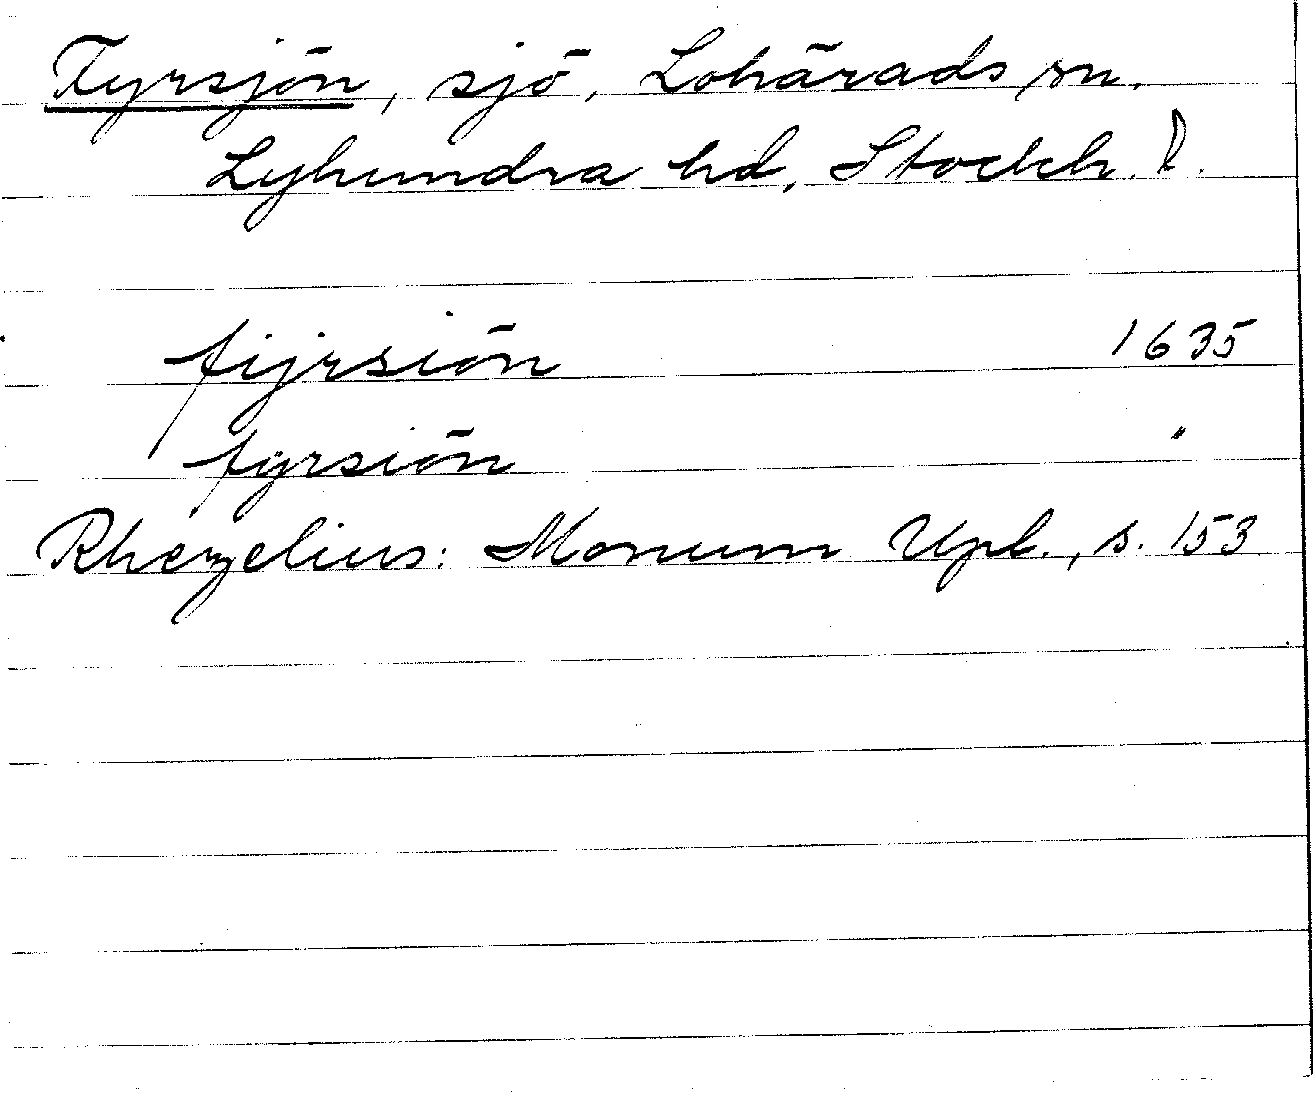 Fyrsjön, sjö, Lohärads sn.
Lyhundra hd, Stockh. l.
fijrsiön 1635
fyrsiön "
Rhezelius: Monum Upl., s. 153